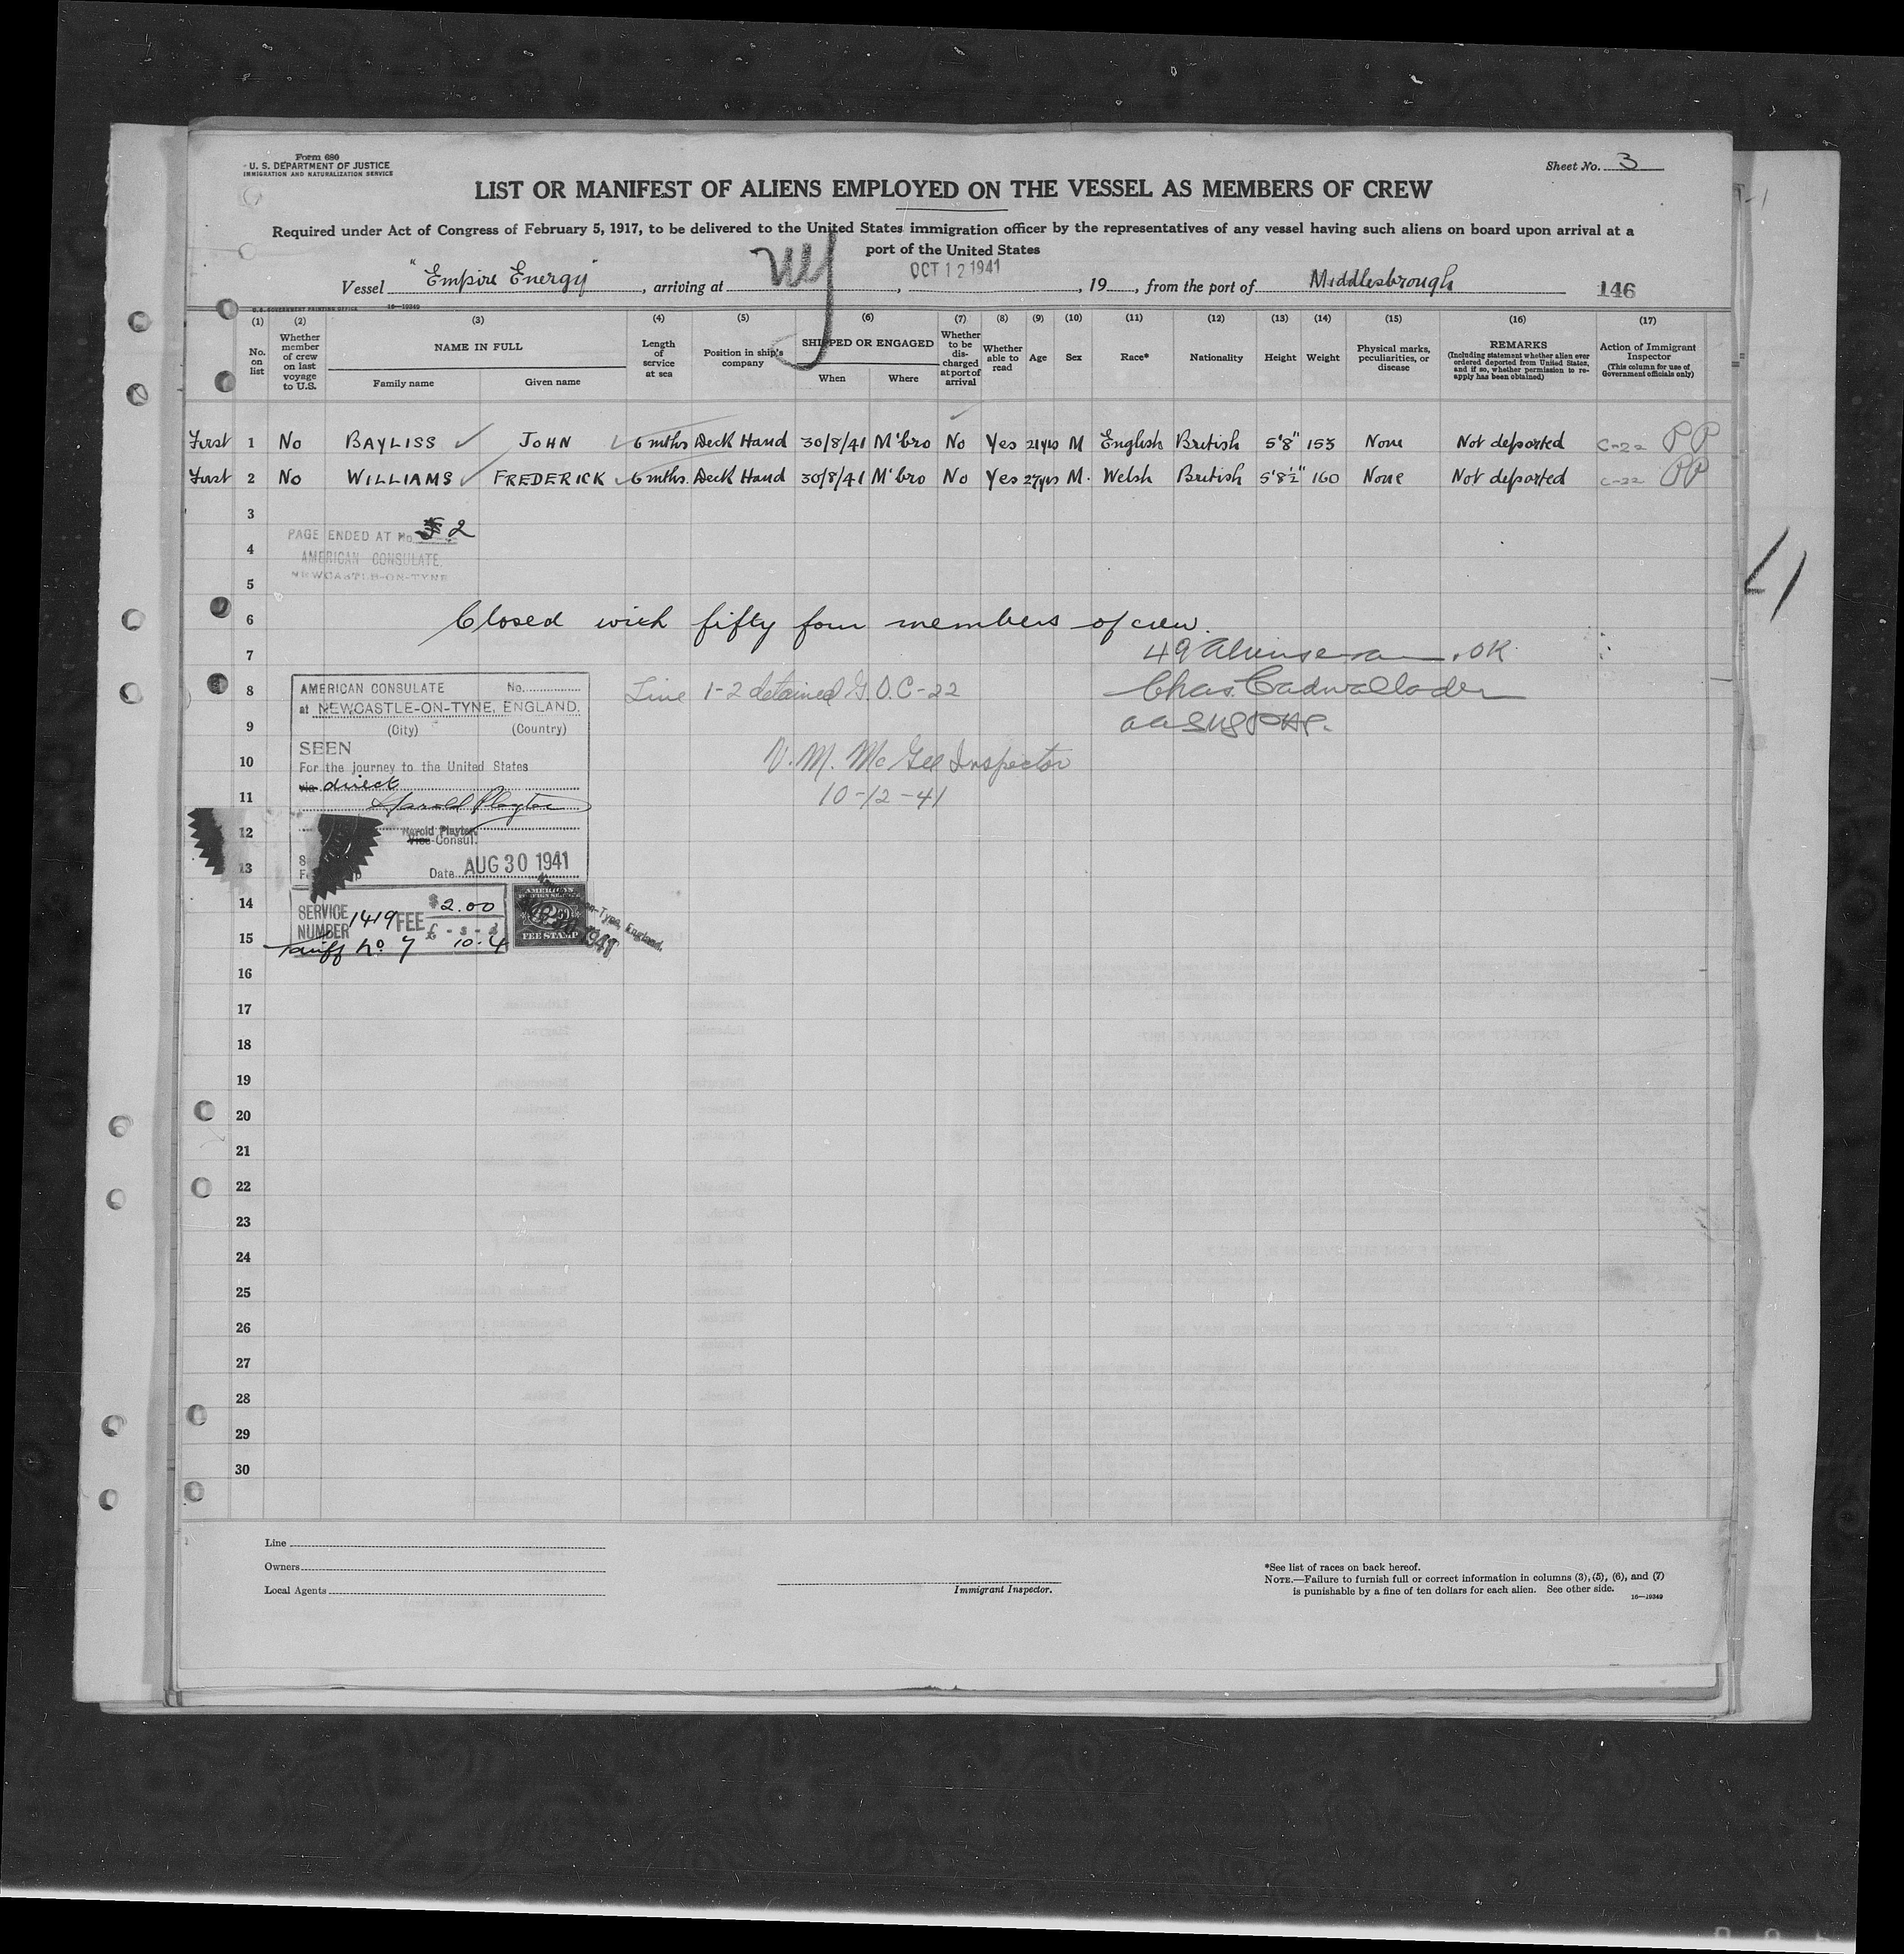 Form 680
U. S. DEPARTMENT OF JUSTICE
IMMIGRATION AND NATURALIZATION SERVICE
Sheet No. 3
LIST OR MANIFEST OF ALIENS EMPLOYED ON THE VESSEL AS MEMBERS OF CREW
Required under Act of Congress of February 5, 1917, to be delivered to the United States immigration officer by the representatives of any vessel having such aliens on board upon arrival at a
port of the United States
OCT 12 1941
Vessel "Empire Energy", arriving at , , 19 , from the port of Middlesbrough 146
U.S. GOVERNMENT PRINTING OFFICE 16—19349
(1) (2) (3) (4) (5) (6) (7) (8) (9) (10) (11) (12) (13) (14) (15) (16) (17)
No. on list
Whether member of crew on last voyage to U.S.
NAME IN FULL
Family name
Given name
Length of service at sea
Position in ship's company
SHIPPED OR ENGAGED
When
Where
Whether to be discharged at port of arrival
Whether able to read
Age
Sex
Race*
Nationality
Height
Weight
Physical marks, peculiarities, or disease
REMARKS
(Including statement whether alien ever ordered deported from United States, and if so, whether permission to reapply has been obtained)
Action of Immigrant Inspector
(This column for use of Government officials only)
First 1 No BAYLISS JOHN 6 mths Deck Hand 30/8/41 M'bro No Yes 21yrs M English British 5'8" 153 None Not deported C-22 PP
First 2 No WILLIAMS FREDERICK 6 mths. Deck Hand 30/8/41 M'bro No Yes 27yrs M. Welsh British 5'8½" 160 None Not deported C-22 PP
3
PAGE ENDED AT No. 2
4
AMERICAN CONSULATE,
NEWCASTLE-ON-TYNE
5
6 Closed with fifty four members of crew.
7
49 Aliens OK
8 Line 1-2 detained G.O.C-22
Chas. Cadwallader
AMERICAN CONSULATE No.
at NEWCASTLE-ON-TYNE, ENGLAND.
(City) (Country)
9
SEEN
For the journey to the United States
via direct
10
V. M. McGee Inspector
10-12-41
11
Harold Playter
12
Harold Playter
Vice-Consul.
13
Date AUG 30 1941
14
SERVICE NUMBER 1419 FEE $2.00
£ - s - d
15
Tariff No. 7 10-4
AMERICAN
FEE STAMP
1941
16
17
18
19
20
21
22
23
24
25
26
27
28
29
30
Line
Owners
Local Agents
Immigrant Inspector.
*See list of races on back hereof.
NOTE.—Failure to furnish full or correct information in columns (3), (5), (6), and (7)
is punishable by a fine of ten dollars for each alien. See other side.
16—19349